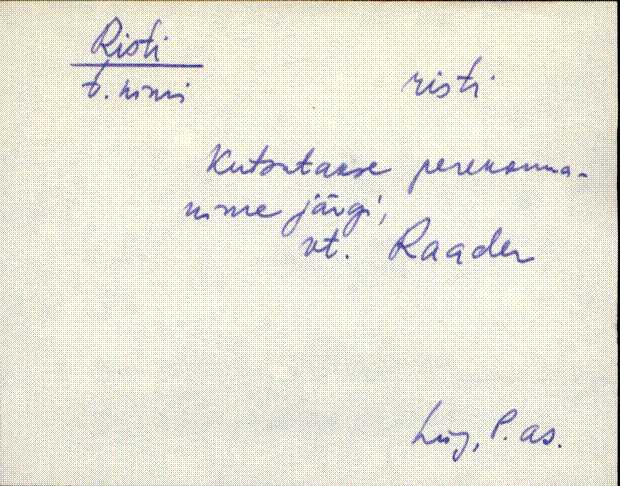 Risti
t. nimi
risti
Kutsutakse perekonna-
nime järgi,
vt. Raader
Lüg, P. as.